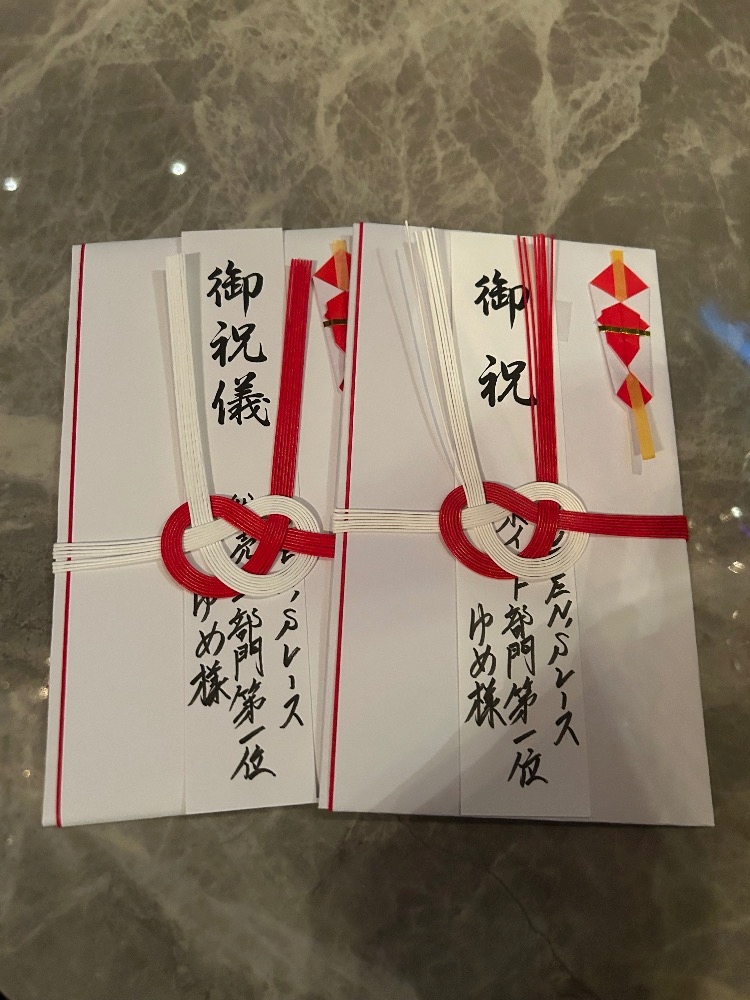 御祝儀
レース
部門第一位
ゆめ様
御祝
EN'Sレース
部門第一位
ゆめ様